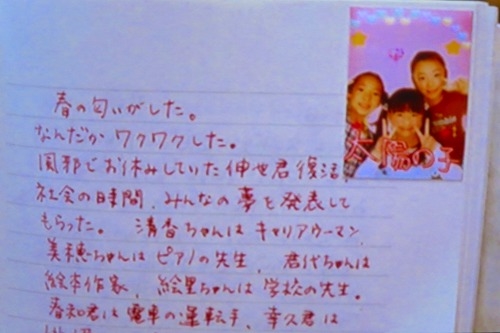 春の匂いがした。
なんだか ワクワクした。
風邪でお休みしていた伸也君復活。
社会の時間、みんなの夢を発表して
もらった。 清香ちゃんは キャリアウーマン、
美穂ちゃんは ピアノの先生、君代ちゃんは
絵本作家、絵里ちゃんは 学校の先生。
春和君は 電車の運転手、幸久君は
太陽の子